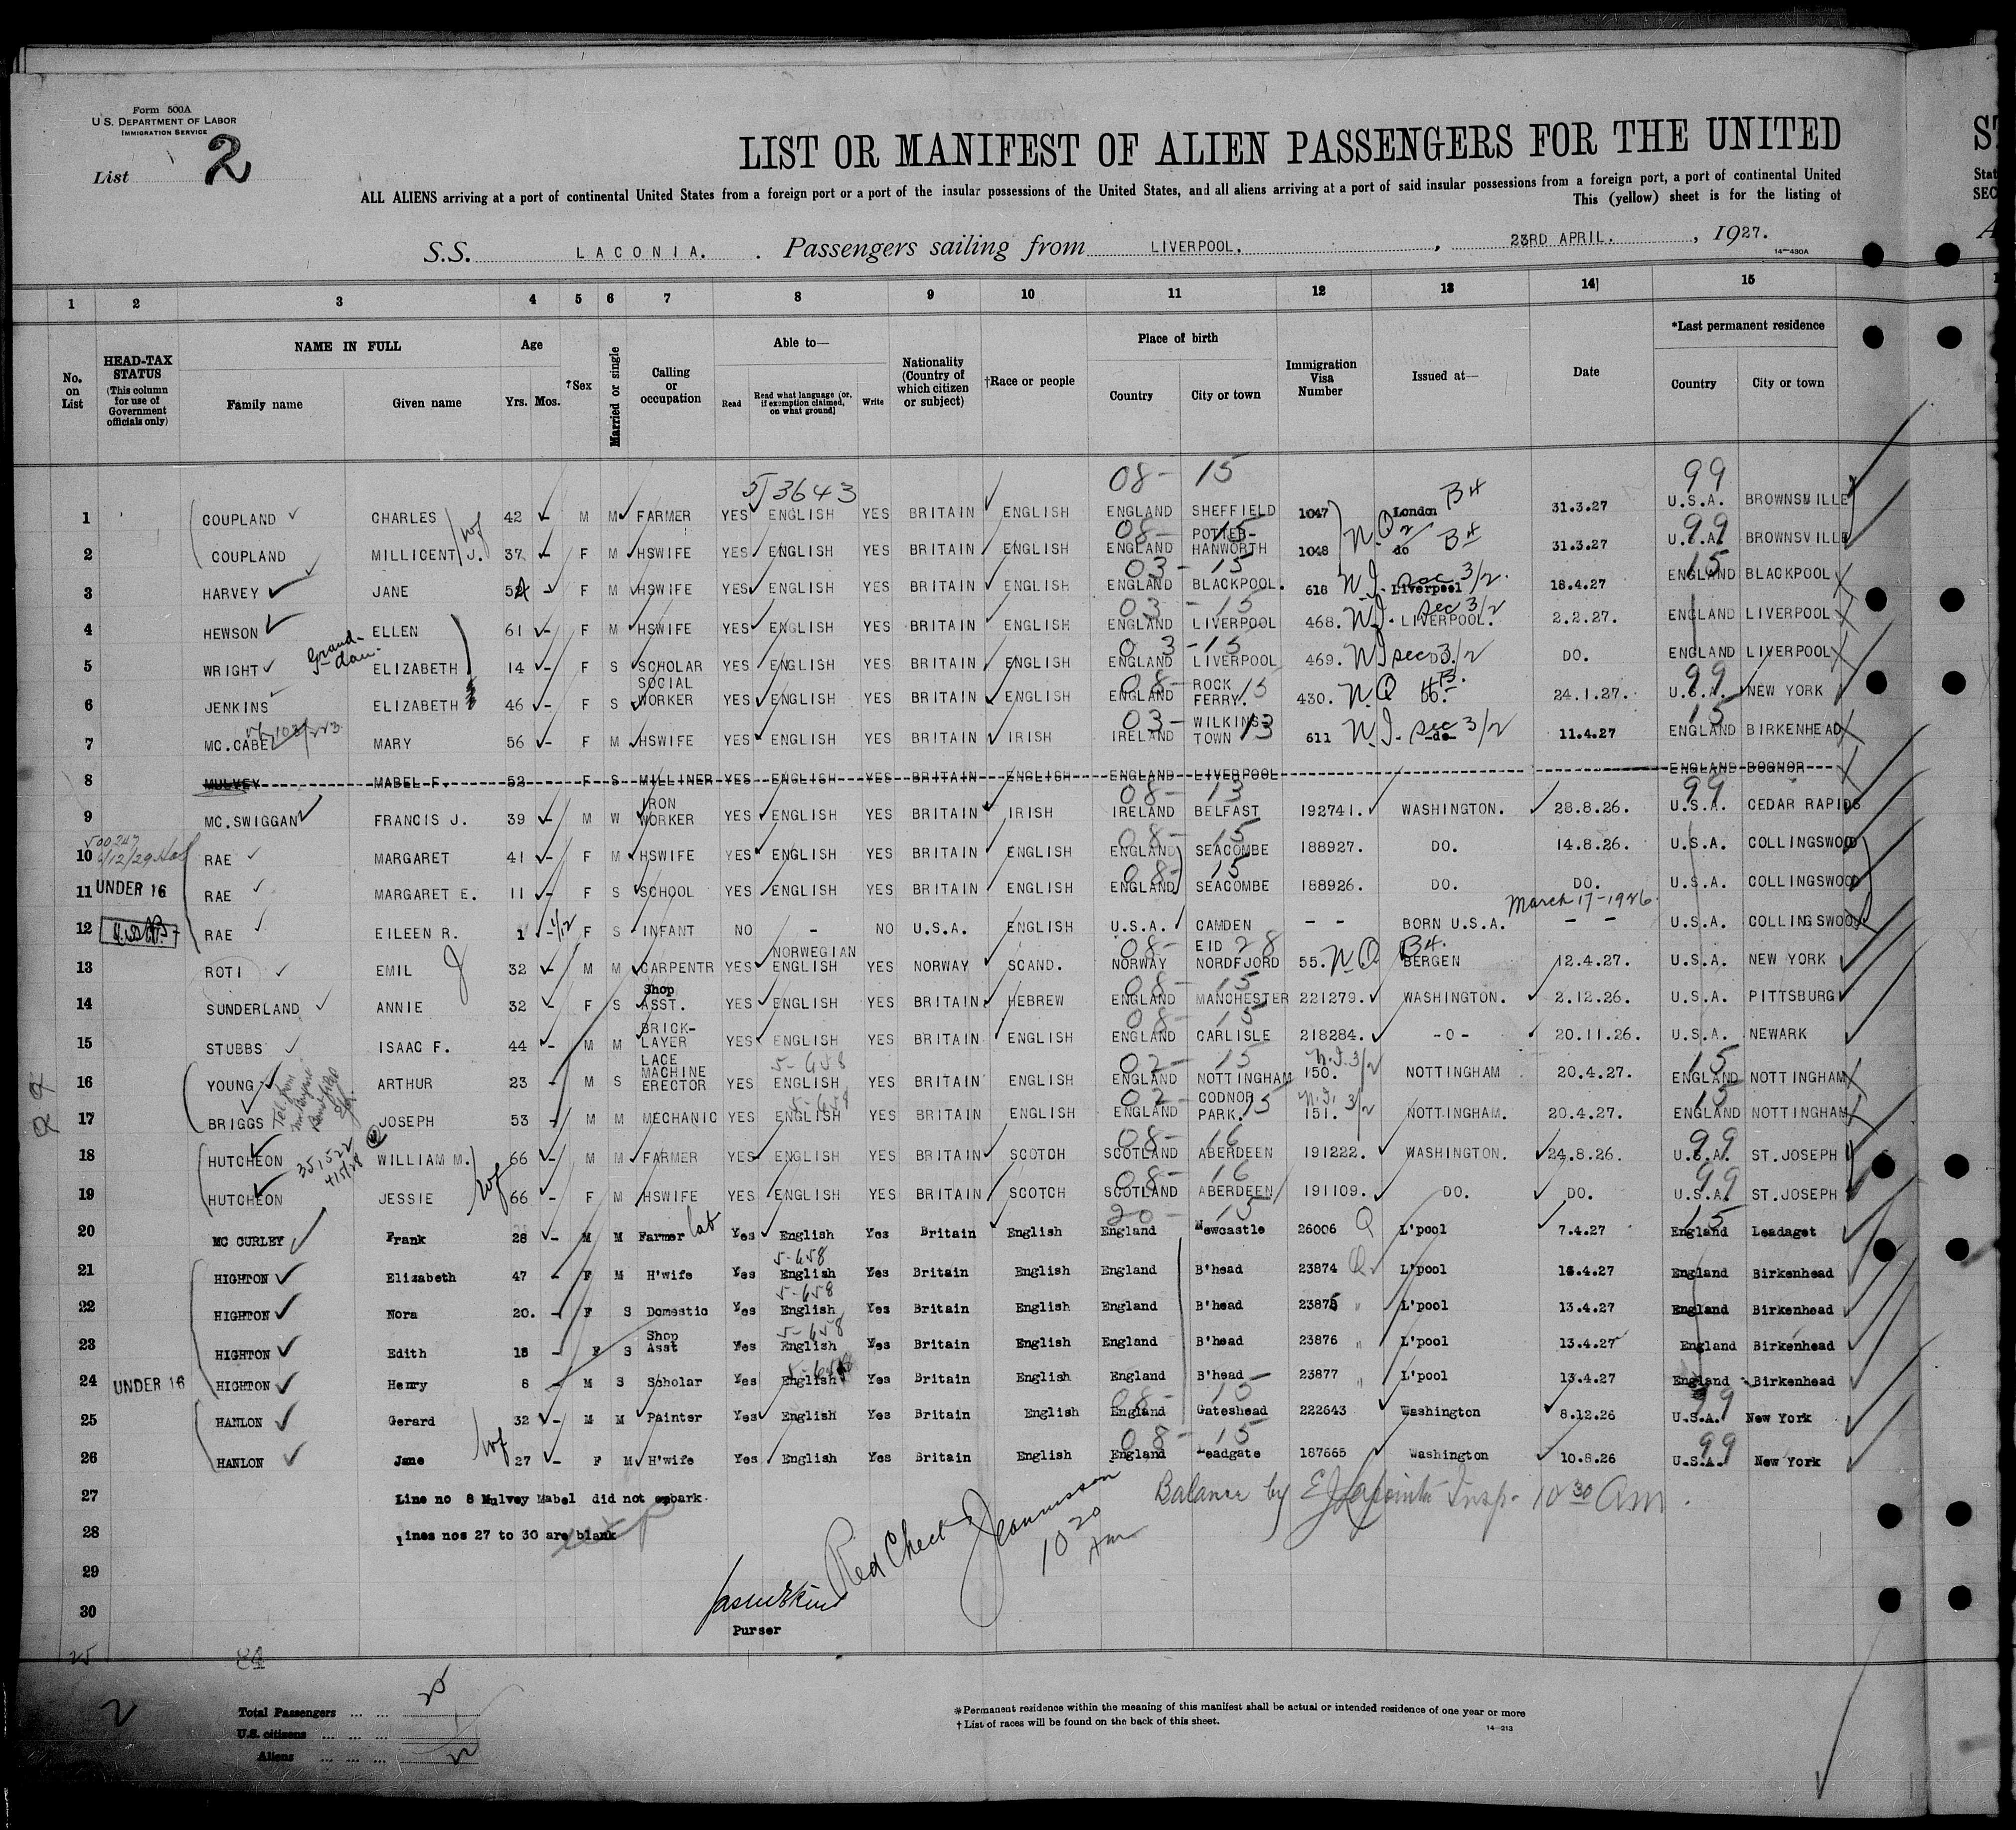 Form 500A
U.S. DEPARTMENT OF LABOR
IMMIGRATION SERVICE
List 2
LIST OR MANIFEST OF ALIEN PASSENGERS FOR THE UNITED
ALL ALIENS arriving at a port of continental United States from a foreign port or a port of the insular possessions of the United States, and all aliens arriving at a port of said insular possessions from a foreign port, a port of continental United
This (yellow) sheet is for the listing of
S.S. LACONIA. Passengers sailing from LIVERPOOL. , 23RD APRIL. , 1927.
14—430A
1 2 3 4 5 6 7 8 9 10 11 12 13 14 15
No. on List
HEAD-TAX STATUS (This column for use of Government officials only)
NAME IN FULL Family name Given name
Age Yrs. Mos.
†Sex
Married or single
Calling or occupation
Able to— Read Read what language [or, if exemption claimed, on what ground] Write
Nationality (Country of which citizen or subject)
†Race or people
Place of birth Country City or town
Immigration Visa Number
Issued at—
Date
*Last permanent residence Country City or town
5/3643 08- 15 99
1 COUPLAND CHARLES 42 M M FARMER YES ENGLISH YES BRITAIN ENGLISH ENGLAND SHEFFIELD 1047 London B4 31.3.27 U.S.A. BROWNSVILLE
wf N.Q 2 08- 15 99
2 COUPLAND MILLICENT J. 37 F M HSWIFE YES ENGLISH YES BRITAIN ENGLISH ENGLAND POTTER-HANWORTH 1048 do B4 31.3.27 U.S.A. BROWNSVILLE
03- 15 15
3 HARVEY JANE 52 F M HSWIFE YES ENGLISH YES BRITAIN ENGLISH ENGLAND BLACKPOOL. 618 N.I. Sec 3/2. Liverpool 18.4.27 ENGLAND BLACKPOOL
03 - 15
4 HEWSON ELLEN 61 F M HSWIFE YES ENGLISH YES BRITAIN ENGLISH ENGLAND LIVERPOOL 468. N.I. Sec 3/2 LIVERPOOL. 2.2.27. ENGLAND LIVERPOOL
Grand-dau. 03 - 15
5 WRIGHT ELIZABETH 14 F S SCHOLAR YES ENGLISH YES BRITAIN ENGLISH ENGLAND LIVERPOOL 469. N.I. Sec 3/2 DO. DO. ENGLAND LIVERPOOL
08- 15 99
6 JENKINS ELIZABETH 46 F S SOCIAL WORKER YES ENGLISH YES BRITAIN ENGLISH ENGLAND ROCK FERRY. 430. N.Q 4B. DO. 24.1.27. U.S.A. NEW YORK
03- 13 15
7 MC.CABE MARY 56 F M HSWIFE YES ENGLISH YES BRITAIN IRISH IRELAND WILKINS-TOWN 611 N.I. Sec 3/2 -do- 11.4.27 ENGLAND BIRKENHEAD
8 MULVEY MABEL F. 52 F S MILLINER YES ENGLISH YES BRITAIN ENGLISH ENGLAND LIVERPOOL ENGLAND BOGNOR
08- 13 99
9 MC.SWIGGAN FRANCIS J. 39 M W IRON WORKER YES ENGLISH YES BRITAIN IRISH IRELAND BELFAST 192741. WASHINGTON. 28.8.26. U.S.A. CEDAR RAPIDS
08- 15
10 RAE MARGARET 41 F M HSWIFE YES ENGLISH YES BRITAIN ENGLISH ENGLAND SEACOMBE 188927. DO. 14.8.26. U.S.A. COLLINGSWOOD
08- 15
11 UNDER 16 RAE MARGARET E. 11 F S SCHOOL YES ENGLISH YES BRITAIN ENGLISH ENGLAND SEACOMBE 188926. DO. DO. U.S.A. COLLINGSWOOD
March 17-1926.
12 RAE EILEEN R. 1 1/12 F S INFANT NO - NO U.S.A. ENGLISH U.S.A. CAMDEN - - BORN U.S.A. - - U.S.A. COLLINGSWOOD
08- 28
13 ROTI EMIL 32 M M CARPENTR YES NORWEGIAN ENGLISH YES NORWAY SCAND. NORWAY EID NORDFJORD 55. N.Q B4. BERGEN 12.4.27. U.S.A. NEW YORK
08- 15
14 SUNDERLAND ANNIE 32 F S Shop ASST. YES ENGLISH YES BRITAIN HEBREW ENGLAND MANCHESTER 221279. WASHINGTON. 2.12.26. U.S.A. PITTSBURG
08- 15
15 STUBBS ISAAC F. 44 M M BRICK-LAYER YES ENGLISH YES BRITAIN ENGLISH ENGLAND CARLISLE 218284. -O- 20.11.26. U.S.A. NEWARK
5-658 02- 15 N.I. 3/2 15
16 YOUNG ARTHUR 23 M S LACE MACHINE ERECTOR YES ENGLISH YES BRITAIN ENGLISH ENGLAND NOTTINGHAM 150. NOTTINGHAM 20.4.27. ENGLAND NOTTINGHAM
5-658 02- 15 N.I. 3/2 15
17 BRIGGS JOSEPH 53 M M MECHANIC YES ENGLISH YES BRITAIN ENGLISH ENGLAND CODNOR PARK. 151. NOTTINGHAM. 20.4.27. ENGLAND NOTTINGHAM
08- 16 99
18 HUTCHEON WILLIAM M. 66 M M FARMER YES ENGLISH YES BRITAIN SCOTCH SCOTLAND ABERDEEN 191222. WASHINGTON. 24.8.26. U.S.A. ST.JOSEPH
wf 08- 16 99
19 HUTCHEON JESSIE 66 F M HSWIFE YES ENGLISH YES BRITAIN SCOTCH SCOTLAND ABERDEEN 191109. DO. DO. U.S.A. ST.JOSEPH
20- 15 15
20 MC CURLEY Frank 28 M M Farmer lab Yes English Yes Britain English England Newcastle 26006 Q L'pool 7.4.27 England Leadaget
5-658
21 HIGHTON Elizabeth 47 F M H'wife Yes English Yes Britain English England B'head 23874 Q L'pool 13.4.27 England Birkenhead
5-658
22 HIGHTON Nora 20. F S Domestic Yes English Yes Britain English England B'head 23875 " L'pool 13.4.27 England Birkenhead
5-658
23 HIGHTON Edith 18 F S Shop Asst Yes English Yes Britain English England B'head 23876 " L'pool 13.4.27 England Birkenhead
5-658
24 UNDER 16 HIGHTON Henry 8 M S Scholar Yes English Yes Britain English England B'head 23877 " L'pool 13.4.27 England Birkenhead
08- 15 99
25 HANLON Gerard 32 M M Painter Yes English Yes Britain English England Gateshead 222643 Washington 8.12.26 U.S.A. New York
wf 08- 15 99
26 HANLON Jane 27 F M H'wife Yes English Yes Britain English England eadgate 187665 Washington 10.8.26 U.S.A. New York
27 Line no 8 Mulvey Mabel did not embark.
Balance by Insp. 10 30 Am.
28 Lines nos 27 to 30 are blank
Red Check 10 20 Am
29
30
Purser
25 84
2
Total Passengers ... ... 25
U.S. citizens ... ... ...
Aliens ... ... ...
*Permanent residence within the meaning of this manifest shall be actual or intended residence of one year or more
† List of races will be found on the back of this sheet.
14—213